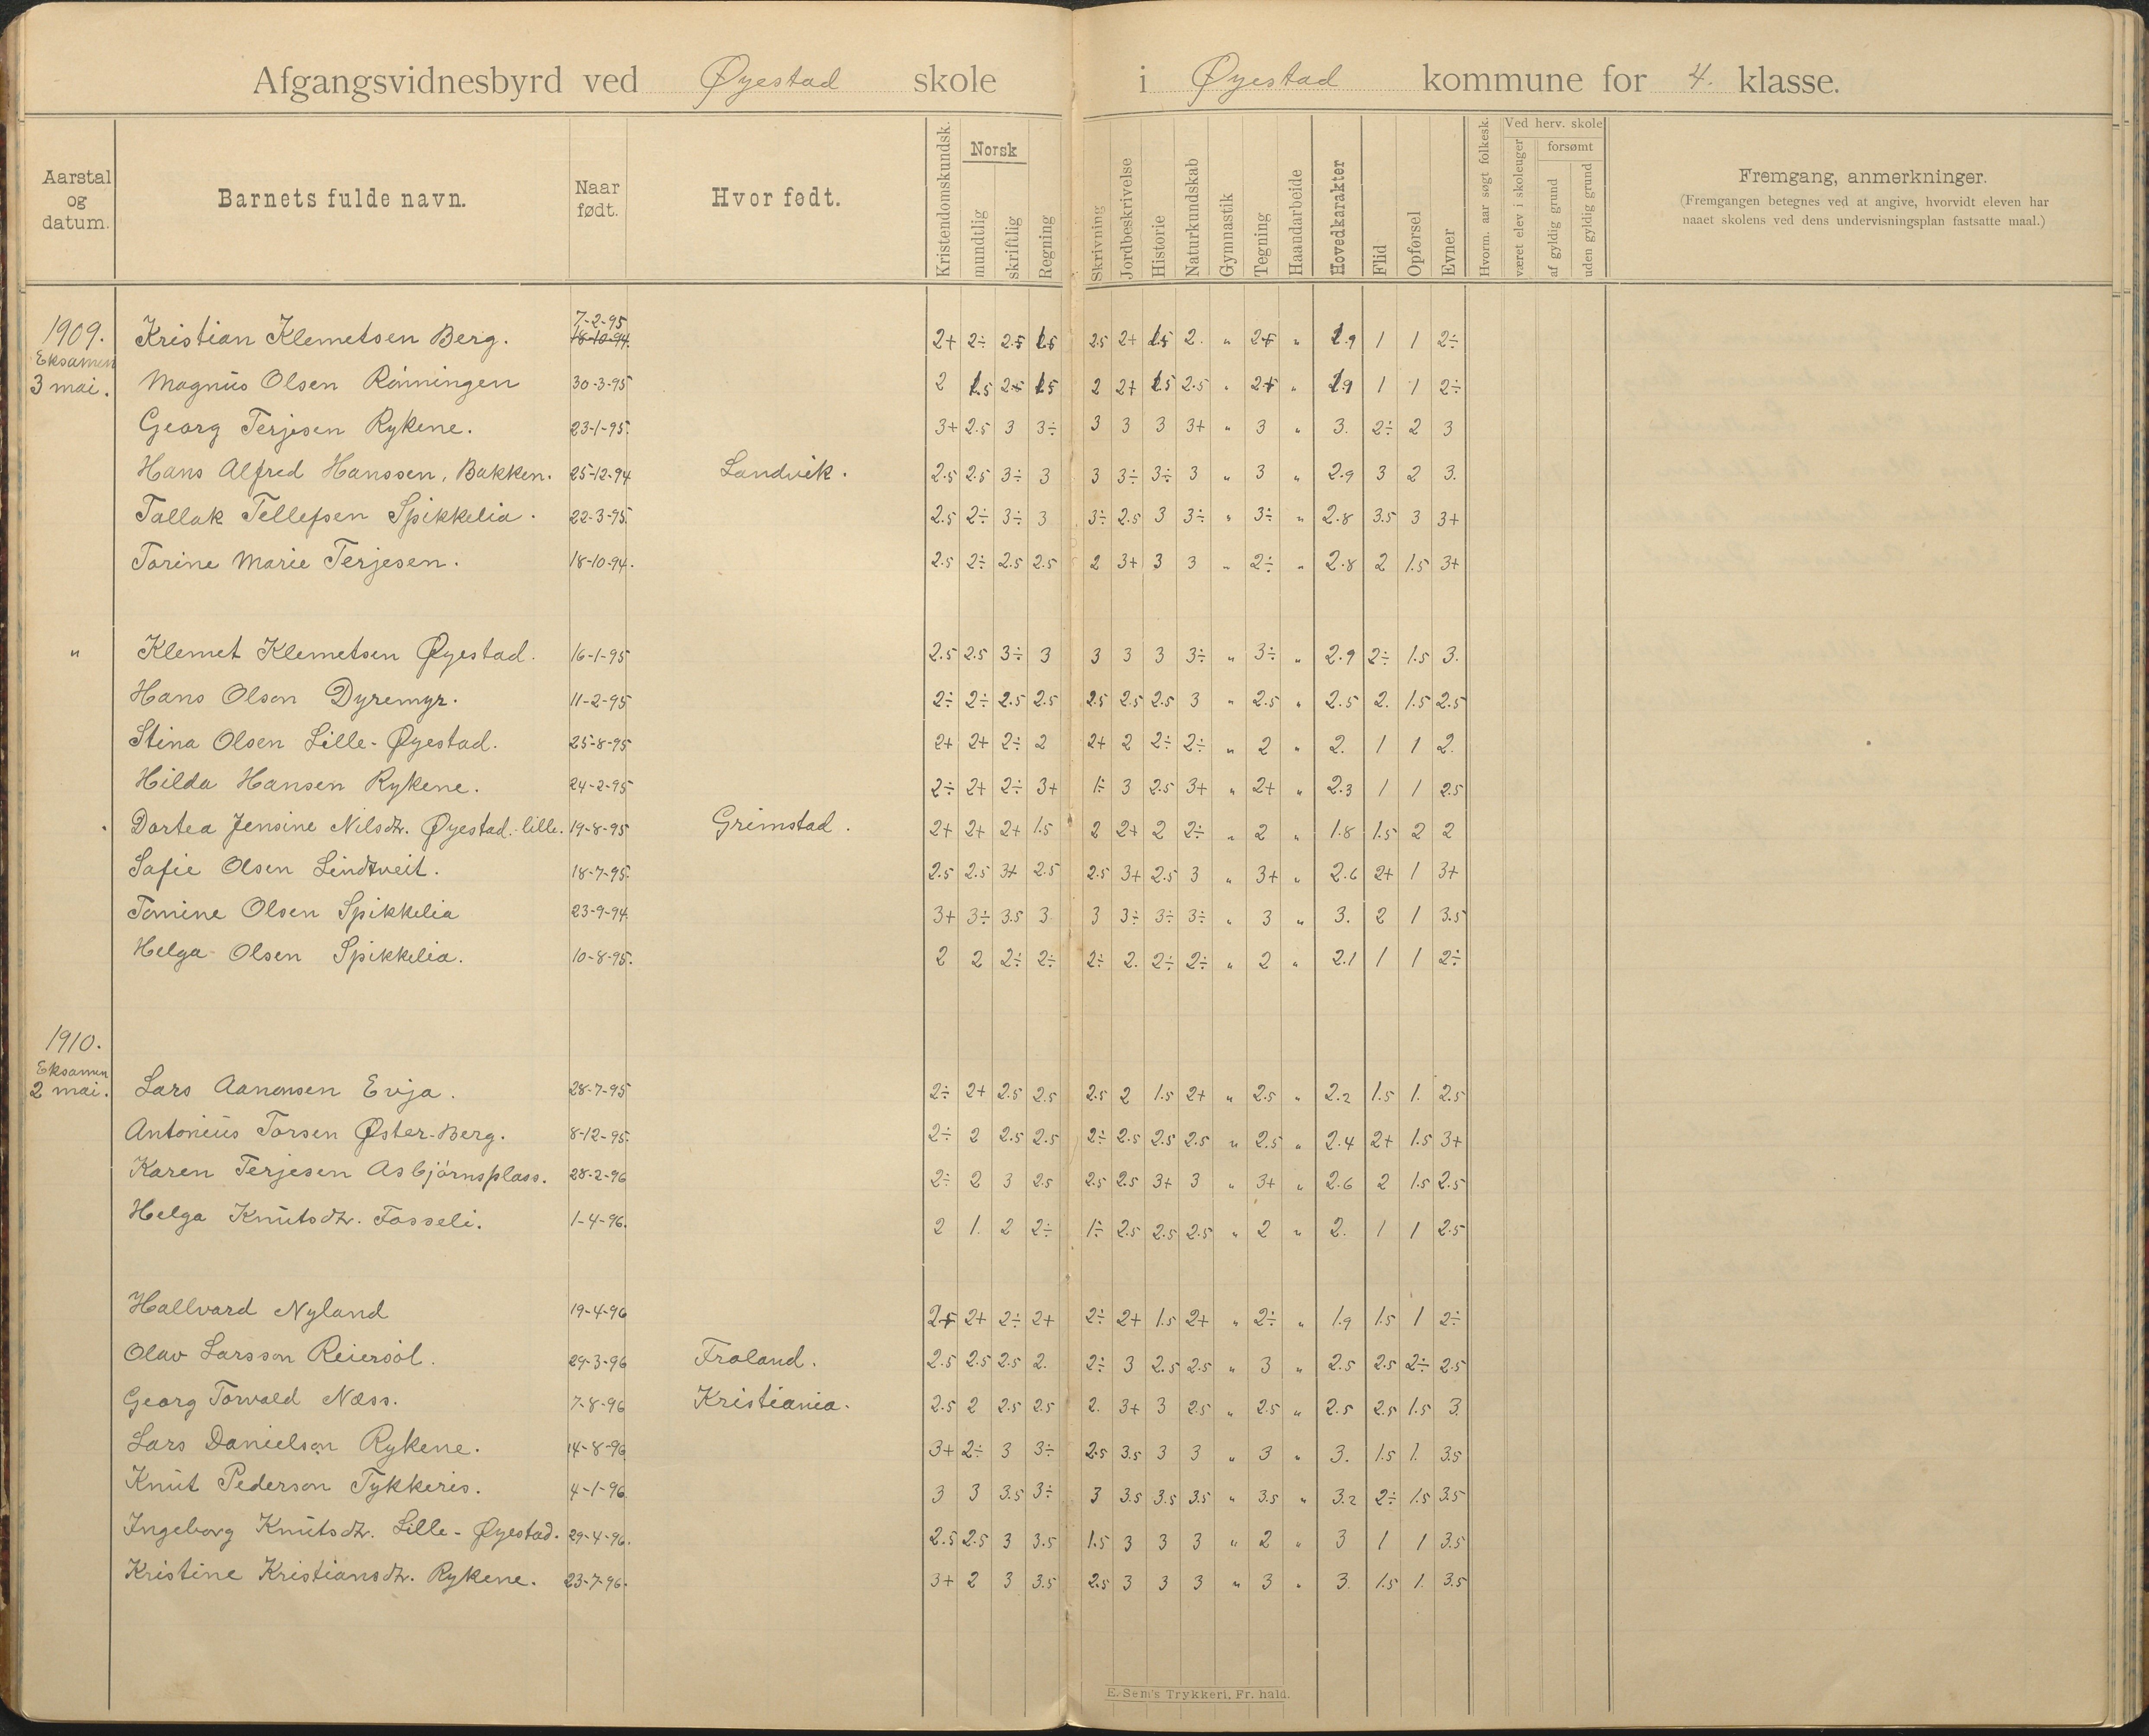 Afgangsvidnesbyrd ved Øyestad skole i Øyestad kommune for 4. klasse.
Aarstal og datum. Barnets fulde navn. Naar født. Hvor født. Kristendomskundsk. Norsk mundtlig skriftlig Regning Skrivning Jordbeskrivelse Historie Naturkundskab Gymnastik Tegning Haandarbeide Hovedkarakter Flid Opførsel Evner Hvorm. aar søgt folkesk. Ved herv. skole været elev i skoleuger forsømt af gyldig grund uden gyldig grund Fremgang, anmerkninger.
(Fremgangen betegnes ved at angive, hvorvidt eleven har
naaet skolens ved dens undervisningsplan fastsatte maal.)
7-2-95
1909. Kristian Klemetsen Berg. 18-10-94. 2+ 2÷ 2.5 1.5 2.5 2+ 1.5 2. " 2+ " 1.9 1 1 2÷
Eksamen
3 mai. Magnus Olsen Rönningen 30-3-95 2 1.5 2.5 1.5 2 2+ 1.5 2.5 " 2+ " 1.9 1 1 2÷
Georg Terjesen Rykene. 23-1-95. 3+ 2.5 3 3÷ 3 3 3 3+ " 3 " 3. 2÷ 2 3
Hans Alfred Hanssen, Bakken. 25-12-94 Landvik. 2.5 2.5 3÷ 3 3 3÷ 3÷ 3 " 3 " 2.9 3 2 3.
Tallak Tellefsen Spikkelia. 22-3-95. 2.5 2÷ 3÷ 3 3÷ 2.5 3 3÷ " 3÷ " 2.8 3.5 3 3+
Torine Marie Terjesen. 18-10-94. 2.5 2÷ 2.5 2.5 2 3+ 3 3 " 2÷ " 2.8 2 1.5 3+
" Klemet Klemetsen Øyestad. 16-1-95 2.5 2.5 3÷ 3 3 3 3 3÷ " 3÷ " 2.9 2÷ 1.5 3.
Hans Olson Dyremyr. 11-2-95 2÷ 2÷ 2.5 2.5 2.5 2.5 2.5 3 " 2.5 " 2.5 2. 1.5 2.5
Stina Olsen Lille-Øyestad. 25-8-95 2+ 2+ 2÷ 2 2+ 2 2÷ 2÷ " 2 " 2. 1 1 2.
Hilda Hansen Rykene. 24-2-95 2÷ 2+ 2÷ 3+ 1÷ 3 2.5 3+ " 2+ " 2.3 1 1 2.5
Dortea Jensine Nilsdtr. Øyestad.-lille. 19-8-95 Grimstad. 2+ 2+ 2+ 1.5 2 2+ 2 2÷ " 2 " 1.8 1.5 2 2
Safie Olsen Lindtveit. 18-7-95. 2.5 2.5 3+ 2.5 2.5 3+ 2.5 3 " 3+ " 2.6 2+ 1 3+
Tomine Olsen Spikkelia 23-9-94. 3+ 3÷ 3.5 3 3 3÷ 3÷ 3÷ " 3 " 3. 2 1 3.5
Helga Olsen Spikkelia. 10-8-95. 2 2 2÷ 2÷ 2÷ 2. 2÷ 2÷ " 2 " 2.1 1 1 2÷
1910.
Eksamen
2 mai. Lars Aanonsen Evja. 28-7-95 2÷ 2+ 2.5 2.5 2.5 2 1.5 2+ " 2.5 " 2.2 1.5 1. 2.5
Antonius Torsen Øster-Berg. 8-12-95. 2÷ 2 2.5 2.5 2÷ 2.5 2.5 2.5 " 2.5 " 2.4 2+ 1.5 3+
Karen Terjesen Asbjörnsplass. 28-2-96 2÷ 2 3 2.5 2.5 2.5 3+ 3 " 3+ " 2.6 2 1.5 2.5
Helga Knutsdtr. Fosseli. 1-4-96. 2 1. 2 2÷ 1÷ 2.5 2.5 2.5 " 2 " 2. 1 1 2.5
Hallvard Nyland 19-4-96 2+ 2+ 2÷ 2+ 2÷ 2+ 1.5 2+ " 2÷ " 1.9 1.5 1 2÷
Olav Larsson Reiersöl. 29-3-96 Froland. 2.5 2.5 2.5 2. 2÷ 3 2.5 2.5 " 3 " 2.5 2.5 2÷ 2.5
Georg Torvald Næss. 7-8-96 Kristiania. 2.5 2 2.5 2.5 2. 3+ 3 2.5 " 2.5 " 2.5 2.5 1.5 3.
Lars Danielson Rykene. 14-8-96 3+ 2÷ 3 3÷ 2.5 3.5 3 3 " 3 " 3. 1.5 1. 3.5
Knut Pederson Tykkeris. 4-1-96 3 3 3.5 3÷ 3 3.5 3.5 3.5 " 3.5 " 3.2 2÷ 1.5 3.5
Ingeborg Knutsdtr. Lille-Øyestad. 29-4-96. 2.5 2.5 3 3.5 1.5 3 3 3 " 2 " 3 1 1 3.5
Kristine Kristiansdtr. Rykene. 23-7-96. 3+ 2 3 3.5 2.5 3 3 3 " 3 " 3. 1.5 1. 3.5
E. Sem's Trykkeri, Fr. hald.